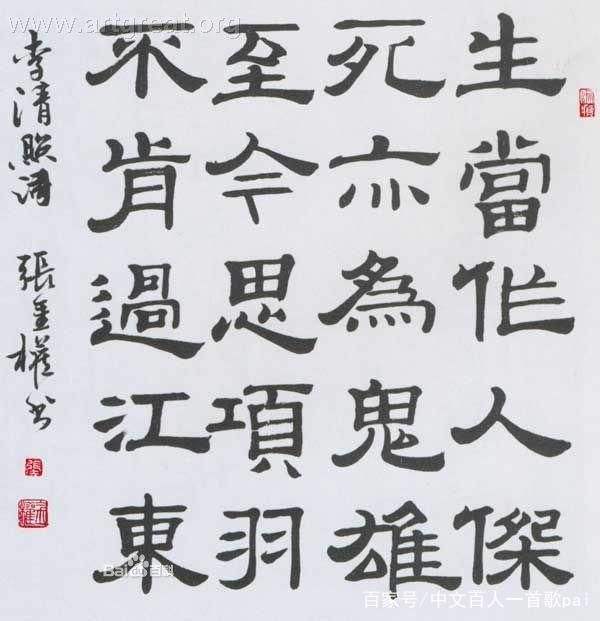 www.artgreat.org
生當作人傑
死亦為鬼雄
至今思項羽
不肯過江東
李清照詩 張權书
張
Bai百科
百家号/中文百人一首歌pai